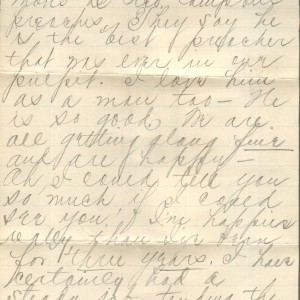 to hear Campbell
preach. They say he
is the best preacher
that was ever in our
pulpit. I love him
as a man too— He
is so good. We are
all getting along fine
and are happy—
Oh, I could tell you
so much if I could
see you! I'm happier
really than I've been
for three years. I have
certainly had a